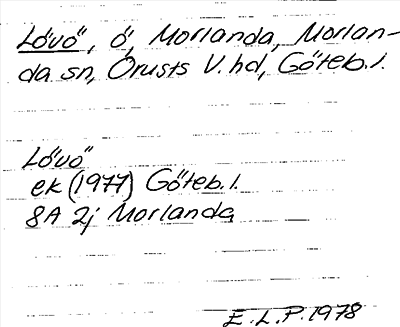 Lövö, ö, Morlanda, Morlan-
da sn, Orusts V. hd, Göteb. l.
Lövö
ek (1977) Göteb. l.
8A 2j Morlanda
E. L. P. 1978